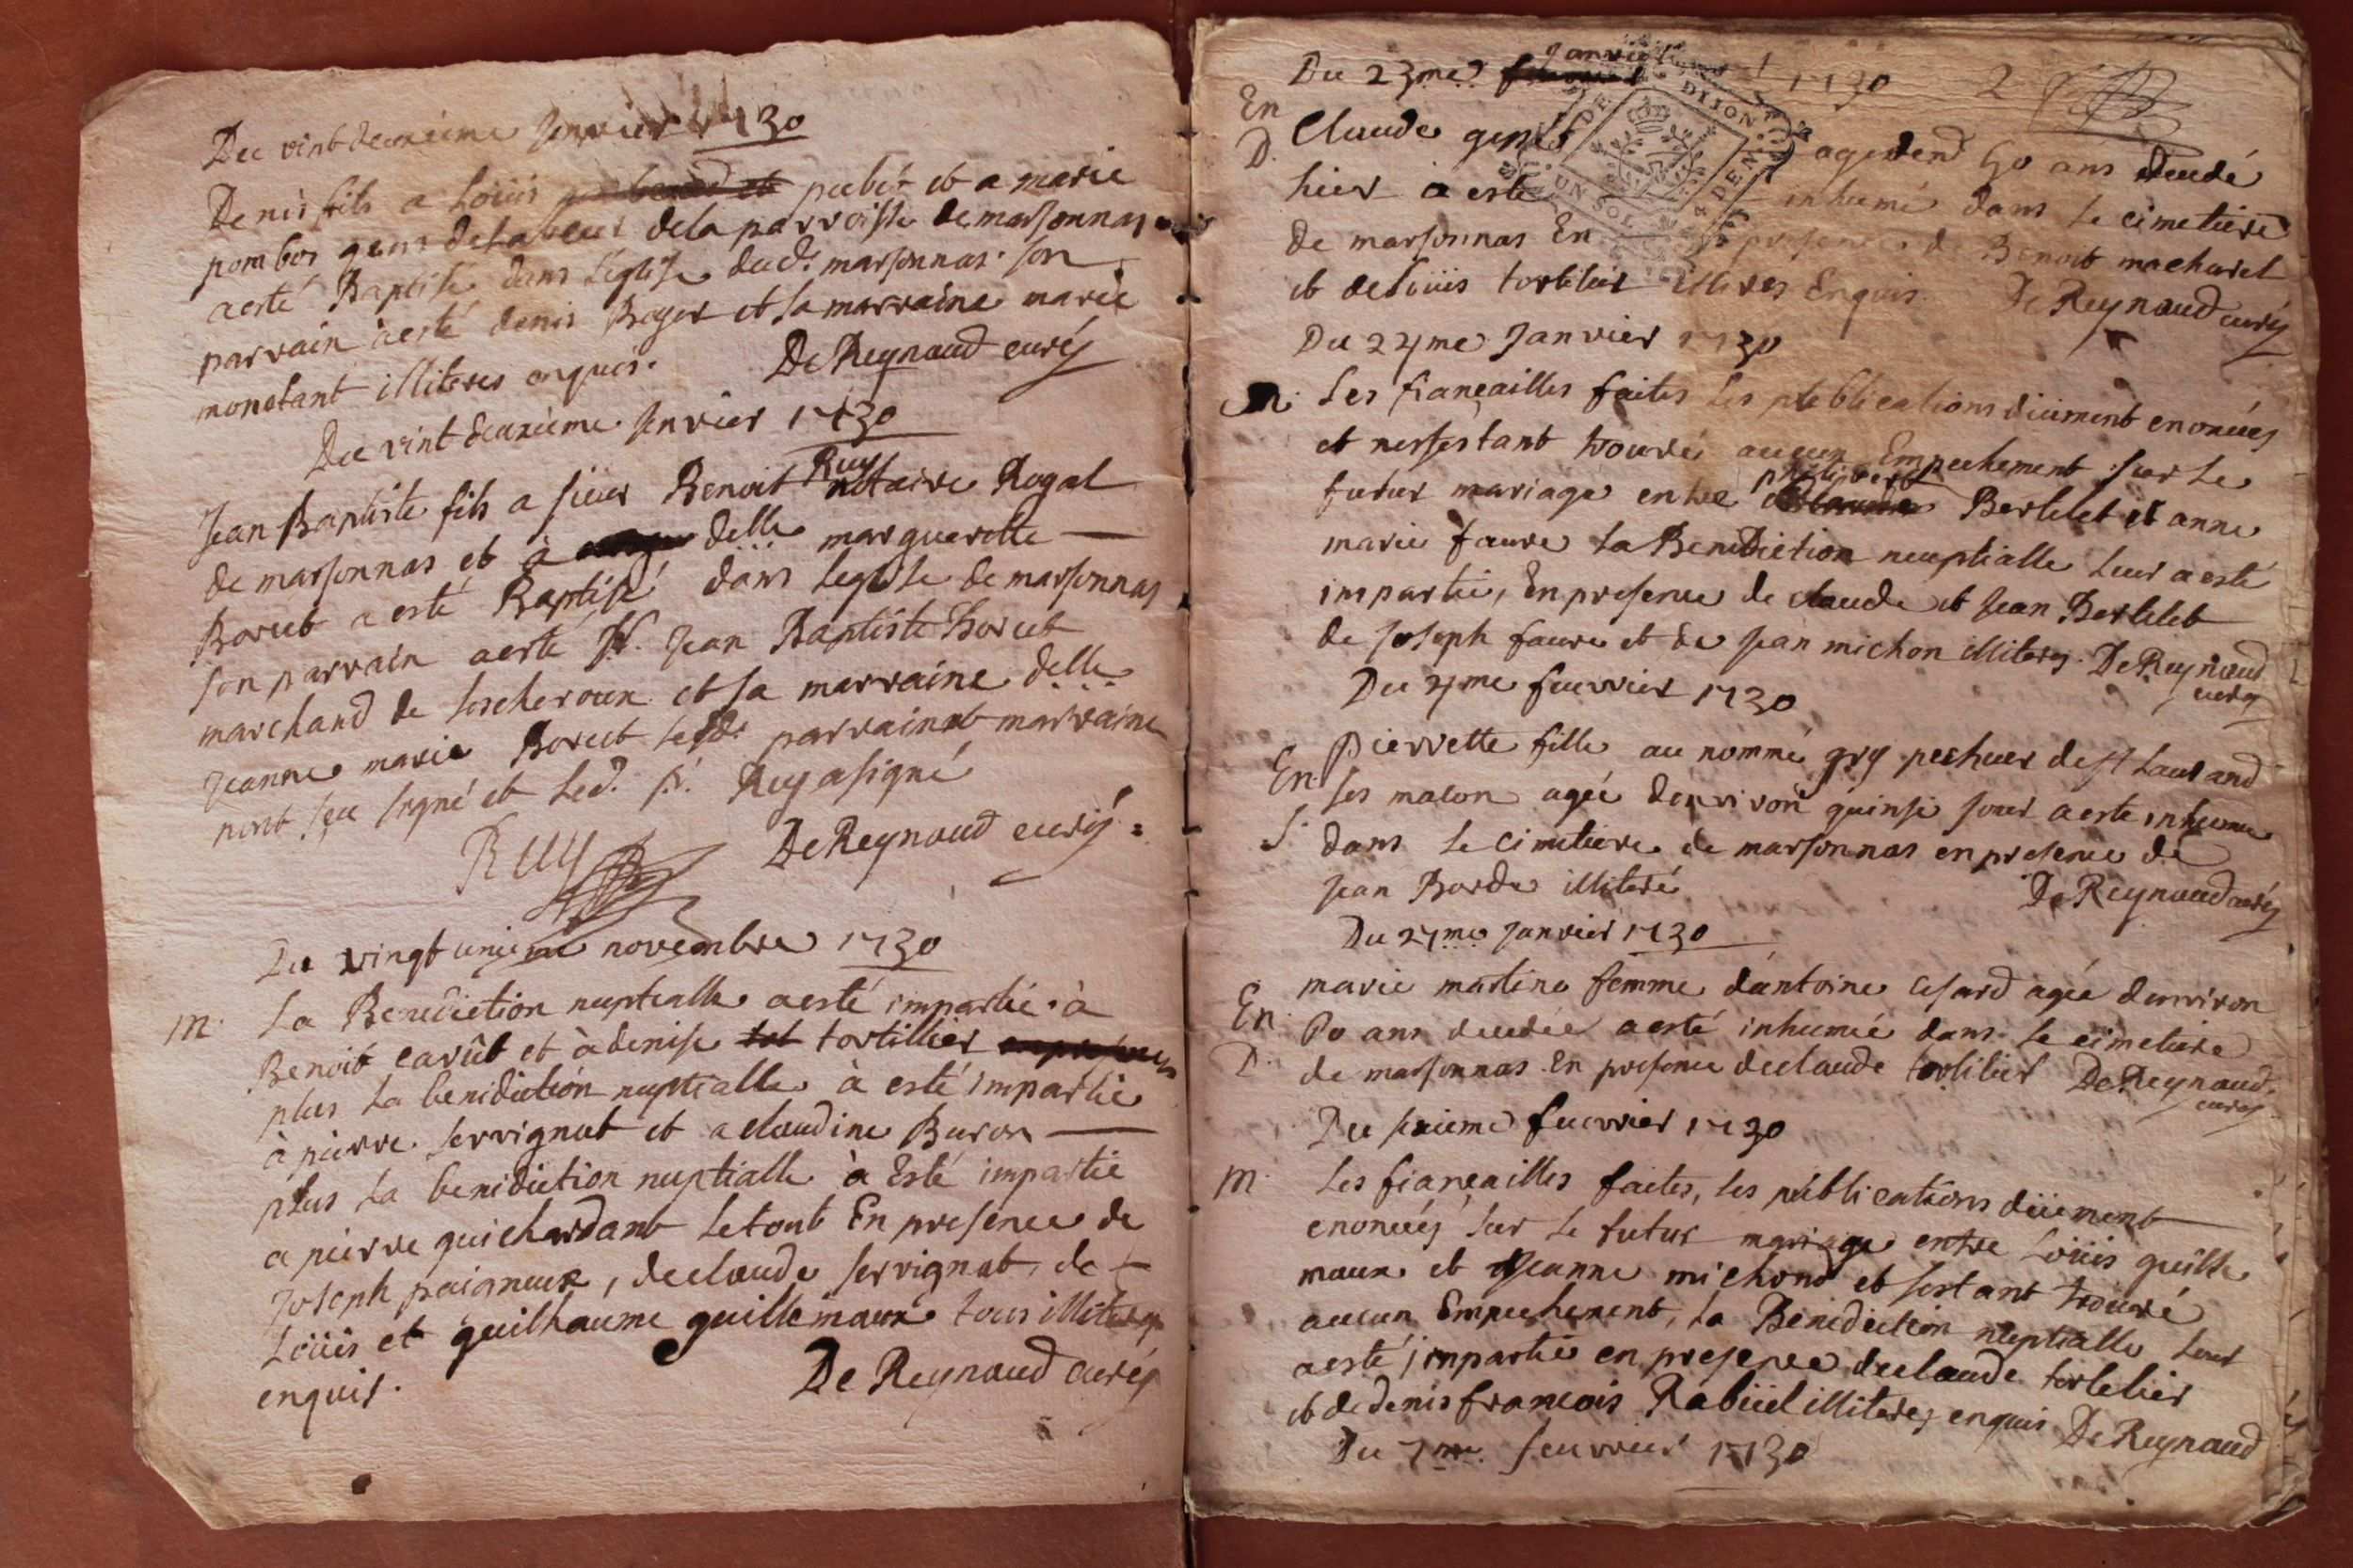 Du vint deuxieme Janvier 1730
Denis fils a Loüis pubet et a marie
pombos gens de labeur dela parroisse de marsonnas
aesté Baptisé dans l'église dud. marsonnas. son
parrain aesté denis Boyer et sa marraine marie
monetant illiteres enquis. De Reynaud curéz
Du vint deuxieme Janvier 1730
Jean Baptiste fils a sieur Benoit Ruy notaire Royal
de marsonnas et à delle marguerette
Borret a esté Baptisé dans leglise de marsonnas
son parrain aesté Sr. Jean Baptiste Borret
marchand de lescheroux et sa marraine delle
Jeanne marie Borret lesd. parrain et marraine
nont seu signé et led. sr. Ruy a signé
Ruy De Reynaud curéz
Du vingt unieme novembre 1730
m. La Benediction nuptialle aesté impartie à
Benoit carüt et à denise tortillier
plus la benediction nuptialle à esté impartie
à pierre servignat et a claudine Buron
plus la benediction nuptialle à Esté impartie
a pierre guichardant le tout En presence de
Joseph paigneux, de claude servignat, de
Loüis et guilhaume guillemaux tous illiterez
enquis. De Reynaud curéz
Du 23me Janvier 1730 2
En
D. Claude agé denv 50 ans decedé
hier a esté inhumé dans le cimetiere
de marsonnas En presence de Benoit machuret
et de Loüis tortelier illiteres Enquis De Reynaud curéz
Du 24me Janvier 1730
m. Les fiançailles faites les publications düement enoncéez
et ne s'estant trouvé aucun Empechement sur le
futur mariage entre philibert Bertelet et anne
marie faure la Benediction nuptialle leur a esté
impartie, En presence de claude et Jean Bertelet
de Joseph faure et de Jean michon illiterez. De Reynaud
curéz
Du 4me feuvrier 1730
Pierrette fille au nommé gry pecheur de St Laurand
En les macon agée denviron quinse jour a esté inhumée
S. dans le cimetiere de marsonnas en presence de
Jean Borde illiteré De Reynaud curéz
Du 27me Janvier 1730
marie martine femme dantoine Cesard agée denviron
En. 80 ans decedée aesté inhumée dans le cimetiere
D. de marsonnas En presence declaude tortelier De Reynaud
curéz
Du sixieme feuvrier 1730
m. Les fiançailles faites, les publications düement
enoncéez sur le futur mariage entre Loüis guille
maux et Jeanne michond et sestant trouvé
aucun Empechement, la Benediction nuptialle leur
aesté impartie en presence declaude tortelier
et de denis françois Rabüel illiterez enquis De Reynaud
Du 7me feuvrier 1730